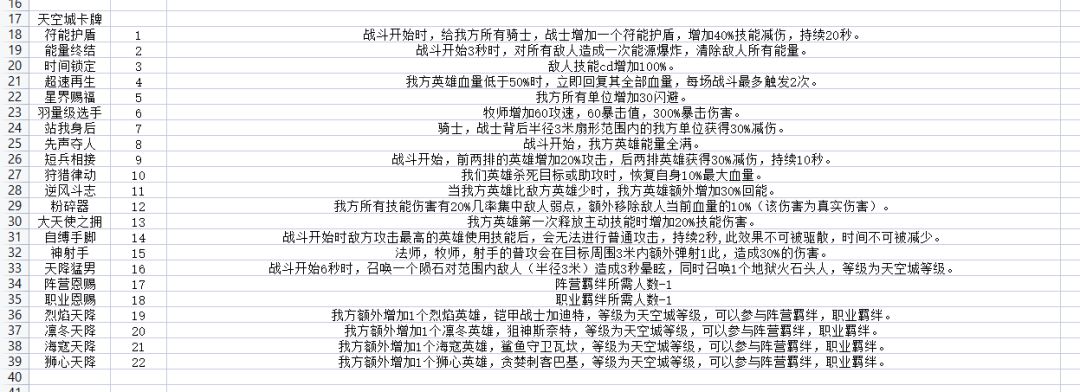 16
17 天空城卡牌
18 符能护盾 1 战斗开始时，给我方所有骑士，战士增加一个符能护盾，增加40%技能减伤，持续20秒。
19 能量终结 2 战斗开始3秒时，对所有敌人造成一次能源爆炸，清除敌人所有能量。
20 时间锁定 3 敌人技能cd增加100%。
21 超速再生 4 我方英雄血量低于50%时，立即回复其全部血量，每场战斗最多触发2次。
22 星界赐福 5 我方所有单位增加30闪避。
23 羽量级选手 6 牧师增加60攻速，60暴击值，300%暴击伤害。
24 站我身后 7 骑士，战士背后半径3米扇形范围内的我方单位获得30%减伤。
25 先声夺人 8 战斗开始，我方英雄能量全满。
26 短兵相接 9 战斗开始，前两排的英雄增加20%攻击，后两排英雄获得30%减伤，持续10秒。
27 狩猎律动 10 我们英雄杀死目标或助攻时，恢复自身10%最大血量。
28 逆风斗志 11 当我方英雄比敌方英雄少时，我方英雄额外增加30%回能。
29 粉碎器 12 我方所有技能伤害有20%几率集中敌人弱点，额外移除敌人当前血量的10%（该伤害为真实伤害）。
30 大天使之拥 13 我方英雄第一次释放主动技能时增加20%技能伤害。
31 自缚手脚 14 战斗开始时敌方攻击最高的英雄使用技能后，会无法进行普通攻击，持续2秒,此效果不可被驱散，时间不可被减少。
32 神射手 15 法师，牧师，射手的普攻会在目标周围3米内额外弹射1此，造成30%的伤害。
33 天降猛男 16 战斗开始6秒时，召唤一个陨石对范围内敌人（半径3米）造成3秒晕眩，同时召唤1个地狱火石头人，等级为天空城等级。
34 阵营恩赐 17 阵营羁绊所需人数-1
35 职业恩赐 18 职业羁绊所需人数-1
36 烈焰天降 19 我方额外增加1个烈焰英雄，铠甲战士加迪特，等级为天空城等级，可以参与阵营羁绊，职业羁绊。
37 凛冬天降 20 我方额外增加1个凛冬英雄，狙神斯奈特，等级为天空城等级，可以参与阵营羁绊，职业羁绊。
38 海寇天降 21 我方额外增加1个海寇英雄，鲨鱼守卫瓦坎，等级为天空城等级，可以参与阵营羁绊，职业羁绊。
39 狮心天降 22 我方额外增加1个狮心英雄，贪婪刺客巴基，等级为天空城等级，可以参与阵营羁绊，职业羁绊。
40